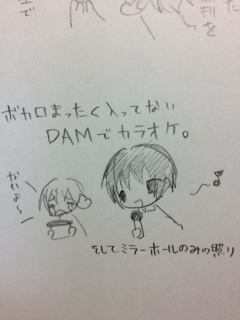 ボカロまったく入ってない
DAMでカラオケ。
ないよ〜
そしてミラーボールのみの照り